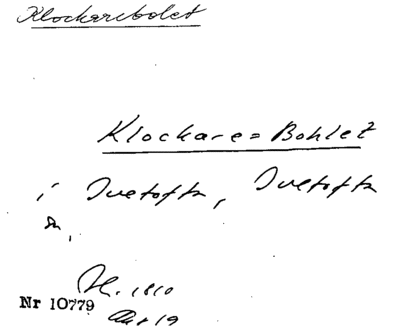 Klockarebolet
Klockare=Bohlet
i Ivetofta, Ivetofta
sn.
H. 1810
Nr 10779
Akt 19